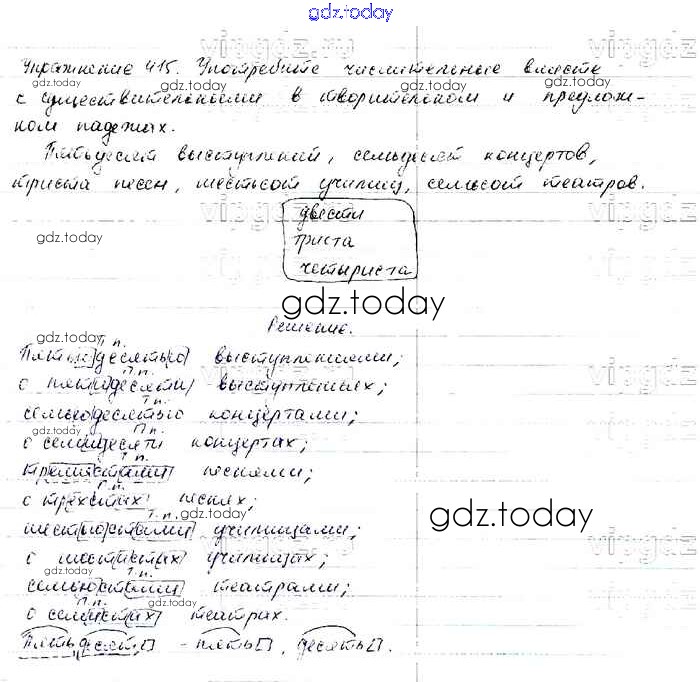 gdz.today
Упражнение 415. Употребите числительные вместе
с существительными в творительном и предлож-
ном падежах.
Пятьдесят выступлений, семьдесят концертов,
триста песен, шестьсот училищ, семьсот театров.
двести
gdz.today
триста
четыриста
gdz.today
Решение.
gdz.today
Т.п.
Пятьюдесятью выступлениями;
П.п.
о пятидесяти выступлениях;
Т.п.
семьюдесятью концертами;
gdz.today
П.п.
о семидесяти концертах;
Т.п.
тремястами песнями;
П.п.
о трёхстах песнях;
gdz.today
Т.п.
шестьюстами училищами;
gdz.today
о шестистах училищах;
gdz.today
Т.п.
семьюстами театрами;
gdz.today
П.п.
о семистах театрах.
Пятьдесят - пять, десять.
gdz.today